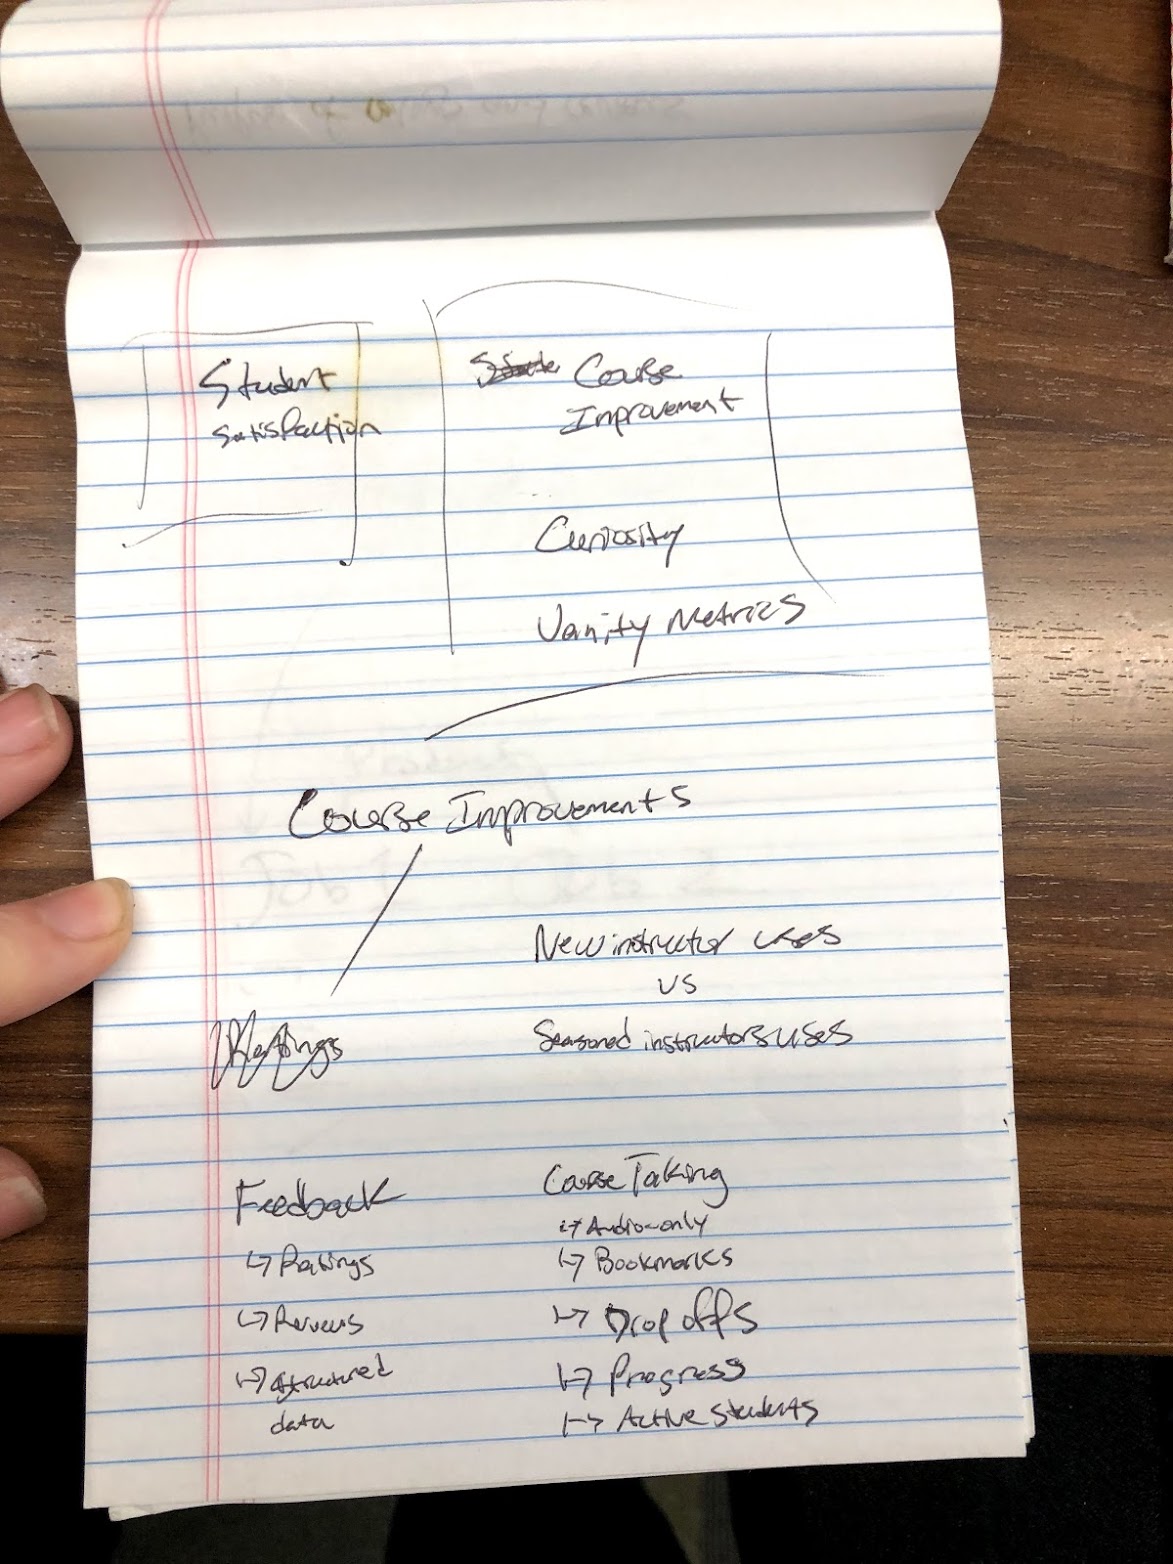 Student
Satisfaction
Course
Improvement
Curiosity
Vanity Metrics
Course Improvements
New instructor uses
vs
Seasoned instructors uses
Ratings
Feedback
↳ Ratings
↳ Reviews
↳ structured
data
Course Taking
↳ Audio-only
↳ Bookmarks
↳ Drop offs
↳ Progress
↳ Active students